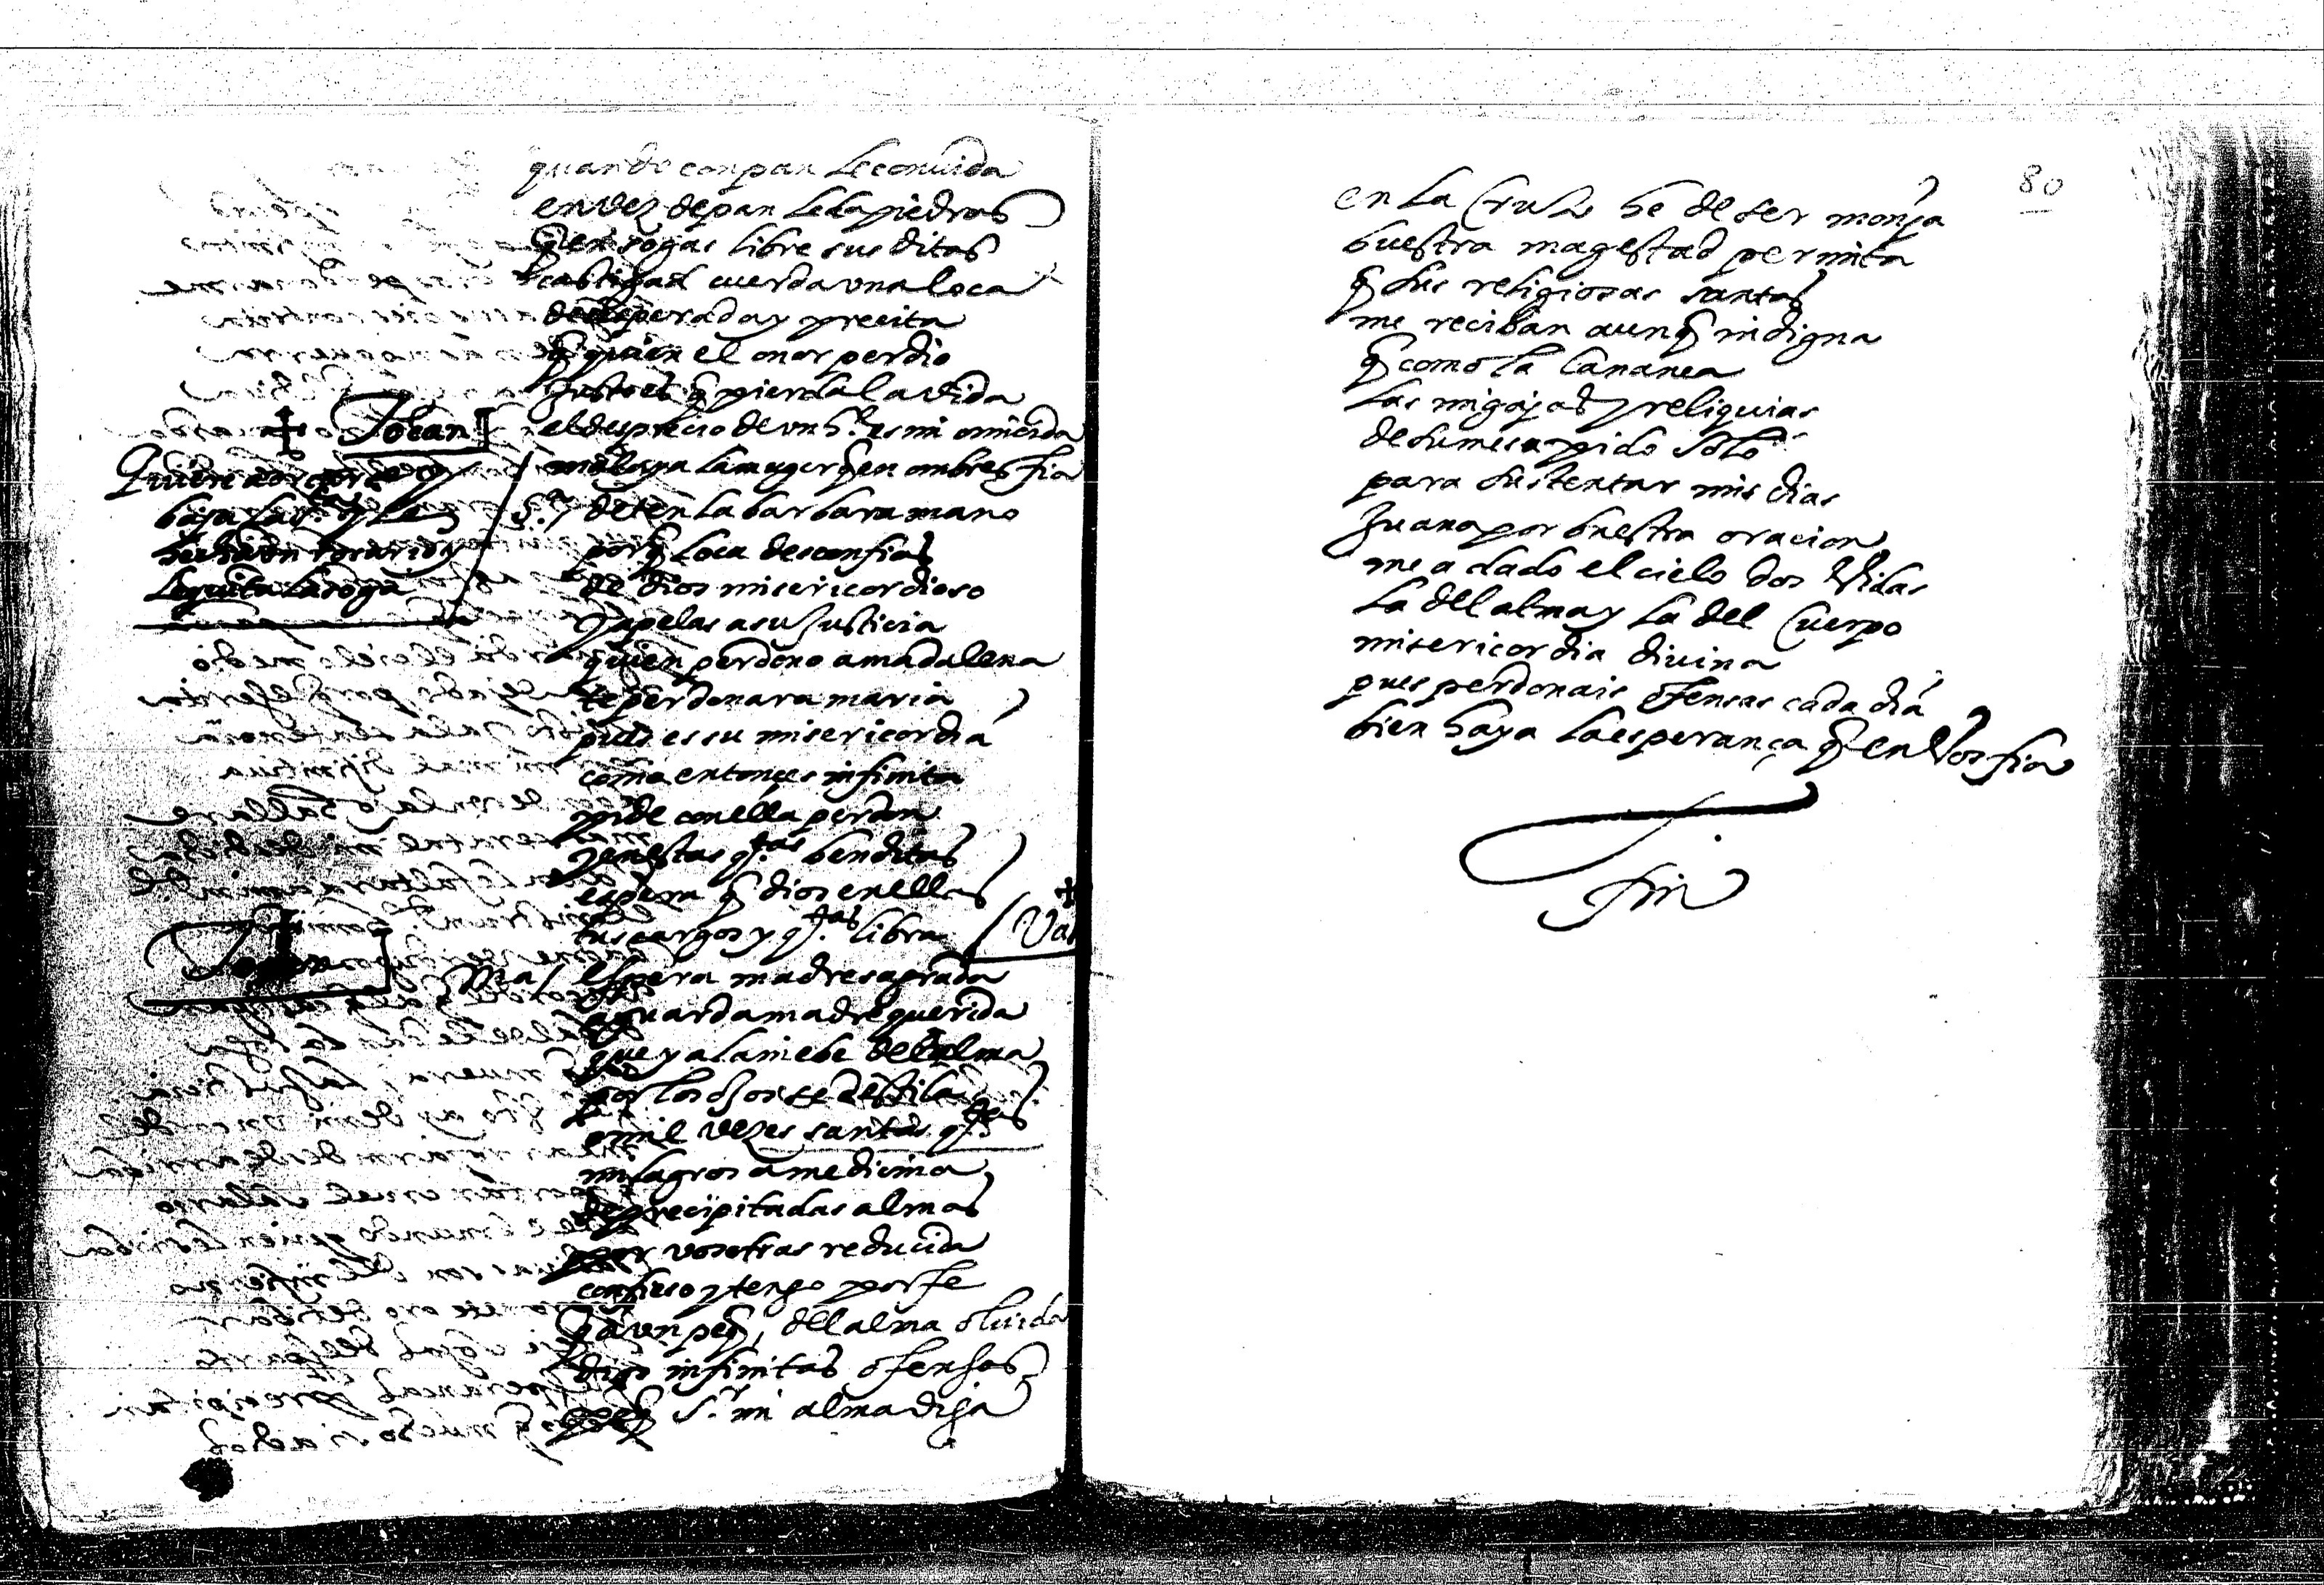 quando con pan le conuida
en vez de pan le da piedras
q en sogas libre sus ditas
castigad cuerda vna loca
desesperada y precita
q quien el onor perdio
justo es q pierda la vida
el desprecio de vn h.e es mi omicida
mal aya la muger q en ombres fia
✝ Tocan
Quiere
baja la
le quita la soga
S.ta / deten la barbara mano
porq loca desconfias
de dios misericordioso
y apelas a su justicia
quien perdono a madalena
te perdonara maria
pues es su misericordia
como entonçes infinita
pide con ella perdon
y en estas q.tas benditas
espera q dios en ellas
tus cargos y q.tas libra
Ma / espera madre sagrada
aguarda madre querida
que ya la niebe del alma
por los ojos se destila
o mil vezes santas q.tas
milagrosa medicina
de precipitadas almas
por vosotras reducida
confieso y tengo por fe
q a vn peq, del alma oluida
dios infinitas ofensas
S.r mi alma diga
80
en la Cruz he de ser monja
buestra magestad permita
q sus religiosas santas
me reciban aunq indigna
q como la Cananea
las migajas y reliquias
de su mesa pido solo
para sustentar mis dias
Juana por buestra oracion
me a dado el cielo dos vidas
la del alma y la del Cuerpo
misericordia divina
pues perdonais ofensas cada dia
bien haya la esperança q en Vos fia
Fin